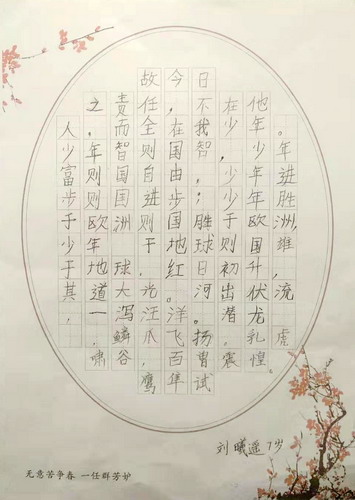 故今日
之责任,不在他
人。而全在我少年。
少年智则国智,少年
富则国自由;少年进
步则国进步,少年胜
于欧洲则国胜于欧洲,
少年于地球则国雄
于地球。红日初升,
其道大光。河出伏流
,一泻汪洋。潜龙
鳞爪飞扬。乳虎
啸谷,百兽震惶。
鹰隼试
刘曦遥 7岁
无意苦争春 一任群芳妒